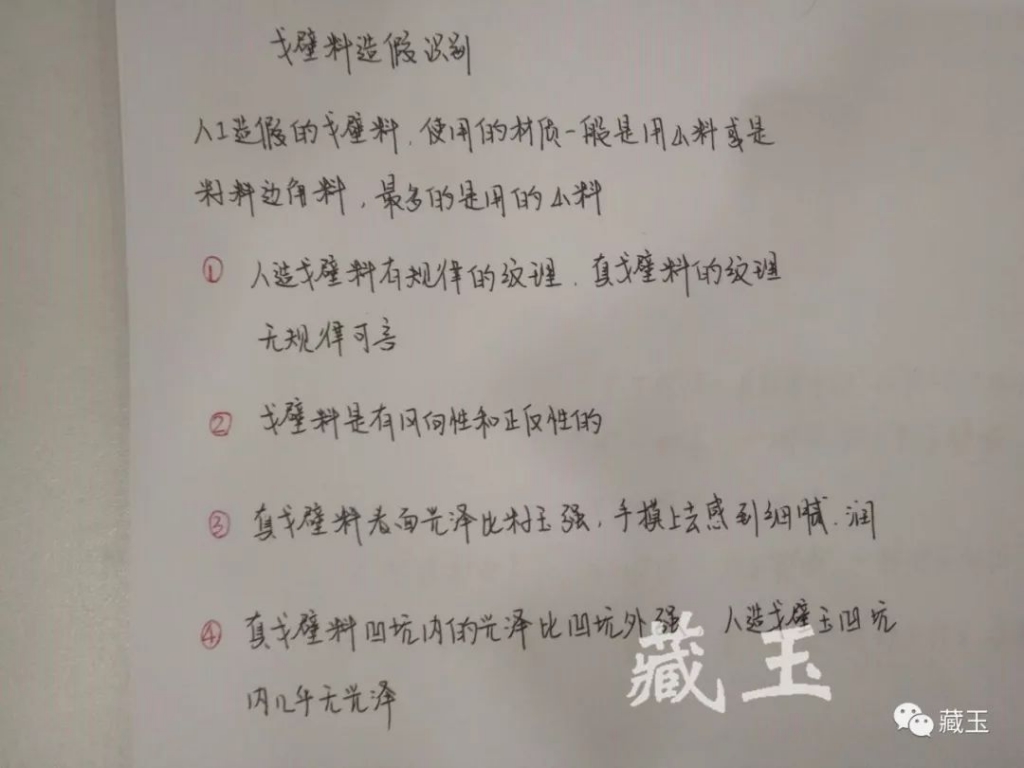 戈壁料造假识别
人工造假的戈壁料，使用的材质一般是用山料或是
籽料边角料，最多的是用的山料
① 人造戈壁料有规律的纹理，真戈壁料的纹理
无规律可言
② 戈壁料是有风向性和正反性的
③ 真戈壁料表面光泽比籽玉强，手摸上去感到细腻、润
④ 真戈壁料凹坑内的光泽比凹坑外强 人造戈壁玉凹坑
内几乎无光泽
藏玉
藏玉